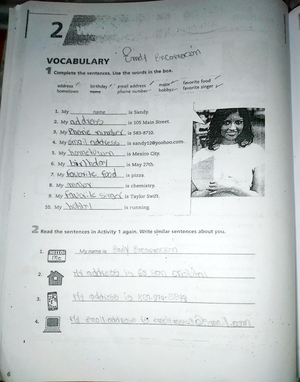 2
VOCABULARY
1 Complete the sentences. Use the words in the box.
address birthday email address major favorite food
hometown name phone number hobby favorite singer
1. My name is Sandy.
2. My address is 105 Main Street.
3. My Phone number is 583-8710.
4. My email address is sandy12@yoohoo.com.
5. My hometown is Mexico City.
6. My birthday is May 27th.
7. My favorite food is pizza.
8. My major is chemistry.
9. My favorite singer is Taylor Swift.
10. My is running.
2 Read the sentences in Activity 1 again. Write similar sentences about you.
1. My name is
2. My address is
3. My address is
4. My email address is
6